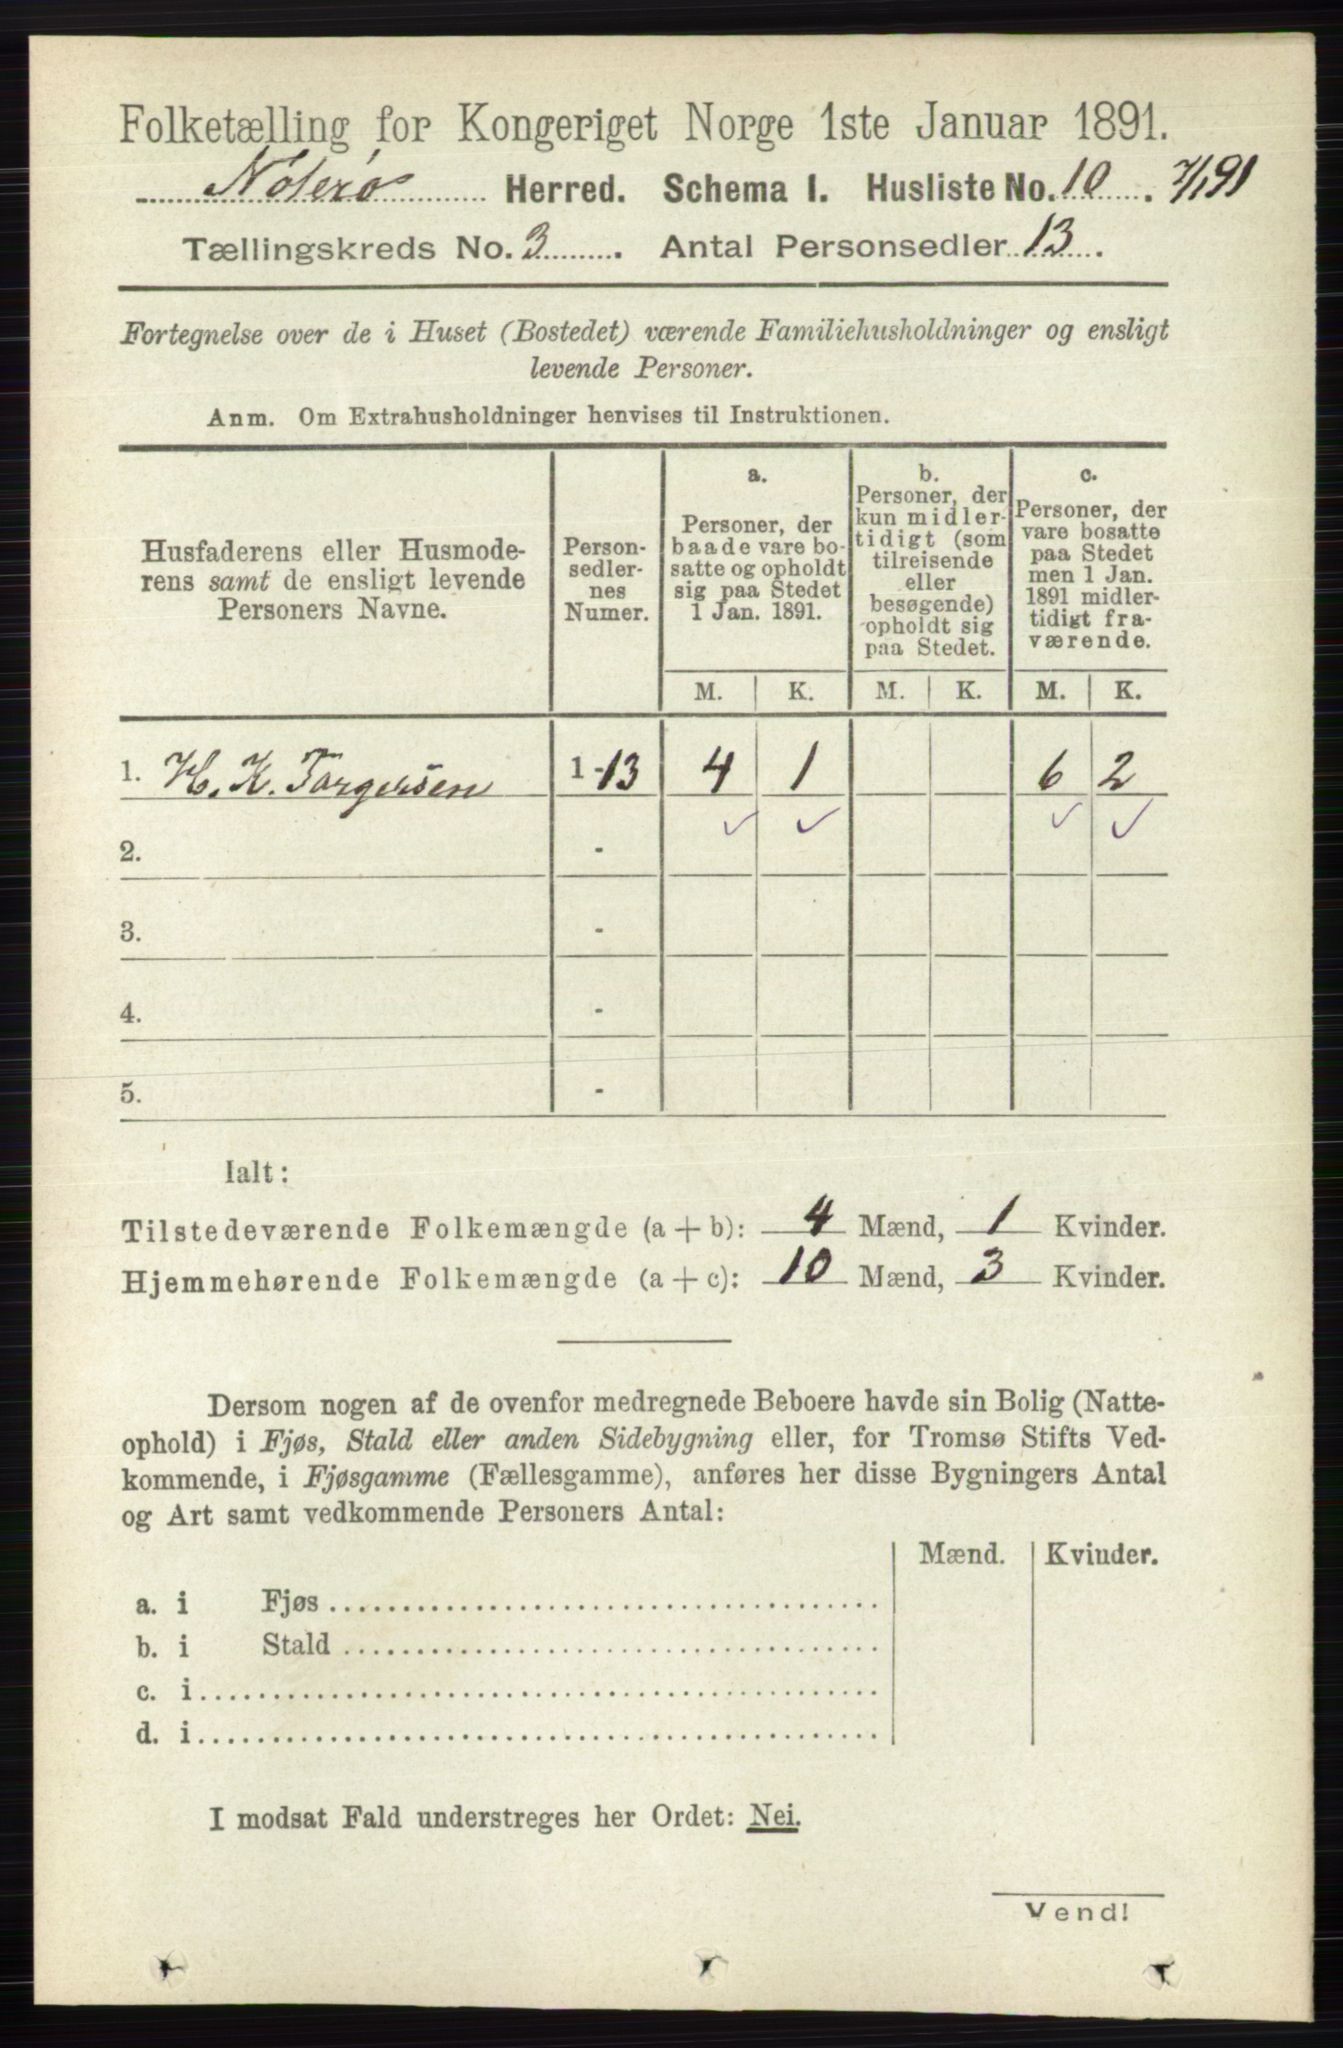 Folketælling for Kongeriget Norge 1ste Januar 1891.
Nøterø Herred. Schema I. Husliste No. 10. 7/1 91
Tællingskreds No. 3. Antal Personsedler 13.
Fortegnelse over de i Huset (Bostedet) værende Familiehusholdninger og ensligt
levende Personer.
Anm. Om Extrahusholdninger henvises til Instruktionen.
Husfaderens eller Husmode-
rens samt de ensligt levende
Personers Navne.
Person-
sedler-
nes
Numer.
a.
Personer, der
baade vare bo-
satte og opholdt
sig paa Stedet
1 Jan. 1891.
b.
Personer, der
kun midler-
tidigt (som
tilreisende
eller
besøgende)
opholdt sig
paa Stedet.
c.
Personer, der
vare bosatte
paa Stedet
men 1 Jan.
1891 midler-
tidigt fra-
værende.
M. K. M. K. M. K.
1. H. K. Torgersen 1-13 4 1 6 2
✓ ✓ ✓ ✓
2. -
3. -
4. -
5. -
Ialt:
Tilstedeværende Folkemængde (a + b): 4 Mænd, 1 Kvinder.
Hjemmehørende Folkemængde (a + c): 10 Mænd, 3 Kvinder.
Dersom nogen af de ovenfor medregnede Beboere havde sin Bolig (Natte-
ophold) i Fjøs, Stald eller anden Sidebygning eller, for Tromsø Stifts Ved-
kommende, i Fjøsgamme (Fællesgamme), anføres her disse Bygningers Antal
og Art samt vedkommende Personers Antal:
Mænd. Kvinder.
a. i Fjøs
b. i Stald
c. i
d. i
I modsat Fald understreges her Ordet: Nei.
Vend!